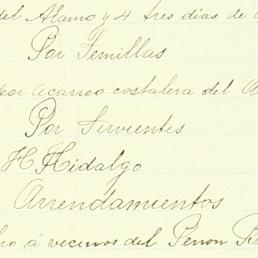 del Alamo y 4 tres dias de
Por Semillas
por acarreo costalera del
Por Sirvientes
H. Hidalgo
Arrendamientos
á vecinos del Peñon